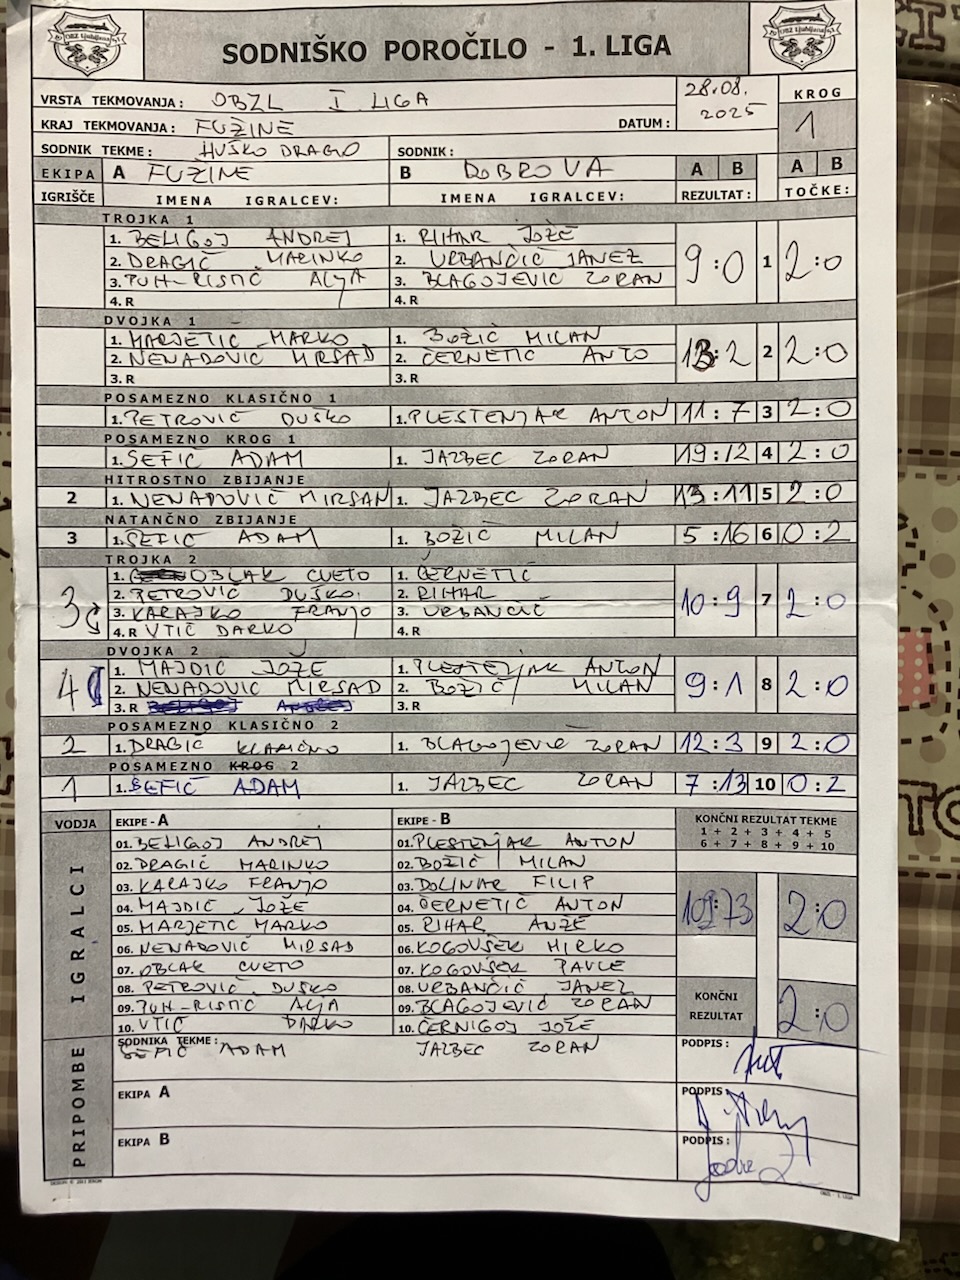 SODNIŠKO POROČILO - 1. LIGA
VRSTA TEKMOVANJA : OBZL I LIGA
28.08. 2025
KROG
1
KRAJ TEKMOVANJA : FUŽINE DATUM :
SODNIK TEKME : HUŠKO DRAGO SODNIK :
EKIPA A FUŽINE B DOBROVA A B A B
IGRIŠČE IMENA IGRALCEV: IMENA IGRALCEV: REZULTAT : TOČKE :
TROJKA 1
1. BELIGOJ ANDREJ 1. RIHAR JOŽE
2. DRAGIČ MARINKO 2. URBANČIČ JANEZ 9:0 1 2:0
3. PUH-RISTIČ ALJA 3. BLAGOJEVIC ZORAN
4. R 4. R
DVOJKA 1
1. MARJETIC MARKO 1. BOŽIČ MILAN
2. NENADOVIC MIRSAD 2. ČERNETIC ANTO 13:2 2 2:0
3. R 3. R
POSAMEZNO KLASIČNO 1
1. PETROVIČ DUŠKO 1. PLESTENJAK ANTON 11:7 3 2:0
POSAMEZNO KROG 1
1. SEFIČ ADAM 1. JAZBEC ZORAN 19:12 4 2:0
HITROSTNO ZBIJANJE
2 1. NENADOVIČ MIRSAN 1. JAZBEC ZORAN 13:11 5 2:0
NATANČNO ZBIJANJE
3 1. SEFIC ADAM 1. BOŽIČ MILAN 5:16 6 0:2
TROJKA 2
1. OBLAK CVETO 1. ČERNETIČ
2. PETROVIC DUŠKO 2. RIHAR
3 3. KARAJKO FRANJO 3. URBANČIČ 10:9 7 2:0
4. R VTIČ DARKO 4. R
DVOJKA 2
1. MAJDIČ JOŽE 1. PLESTENJAK ANTON
4 2. NENADOVIC MIRSAD 2. BOŽIČ MILAN 9:1 8 2:0
3. R 3. R
POSAMEZNO KLASIČNO 2
2 1. DRAGIČ 1. BLAGOJEVIC ZORAN 12:3 9 2:0
POSAMEZNO KROG 2
1 1. SEFIČ ADAM 1. JAZBEC ZORAN 7:13 10 0:2
VODJA EKIPE - A EKIPE - B KONČNI REZULTAT TEKME
1 + 2 + 3 + 4 + 5
6 + 7 + 8 + 9 + 10
IGRALCI
01. BELIGOJ ANDREJ 01. PLESTENJAK ANTON
02. DRAGIČ MARINKO 02. BOŽIČ MILAN
03. KARAJKO FRANJO 03. DOLINAR FILIP
04. MAJDIČ JOŽE 04. ČERNETIČ ANTON
05. MARJETIC MARKO 05. RIHAR ANŽE
109:73 2:0
06. NENADOVIČ MIRSAD 06. KOGOVŠEK MIRKO
07. OBLAK CVETO 07. KOGOVŠEK PAVLE
08. PETROVIČ DUŠKO 08. URBANČIČ JANEZ
09. PUH-RISTIČ ALJA 09. BLAGOJEVIČ ZORAN
10. VTIČ DARKO 10. ČERNIGOJ JOŽE
KONČNI REZULTAT 2:0
PRIPOMBE
SODNIKA TEKME : PODPIS :
SEFIČ ADAM JAZBEC ZORAN
EKIPA A PODPIS :
EKIPA B PODPIS :